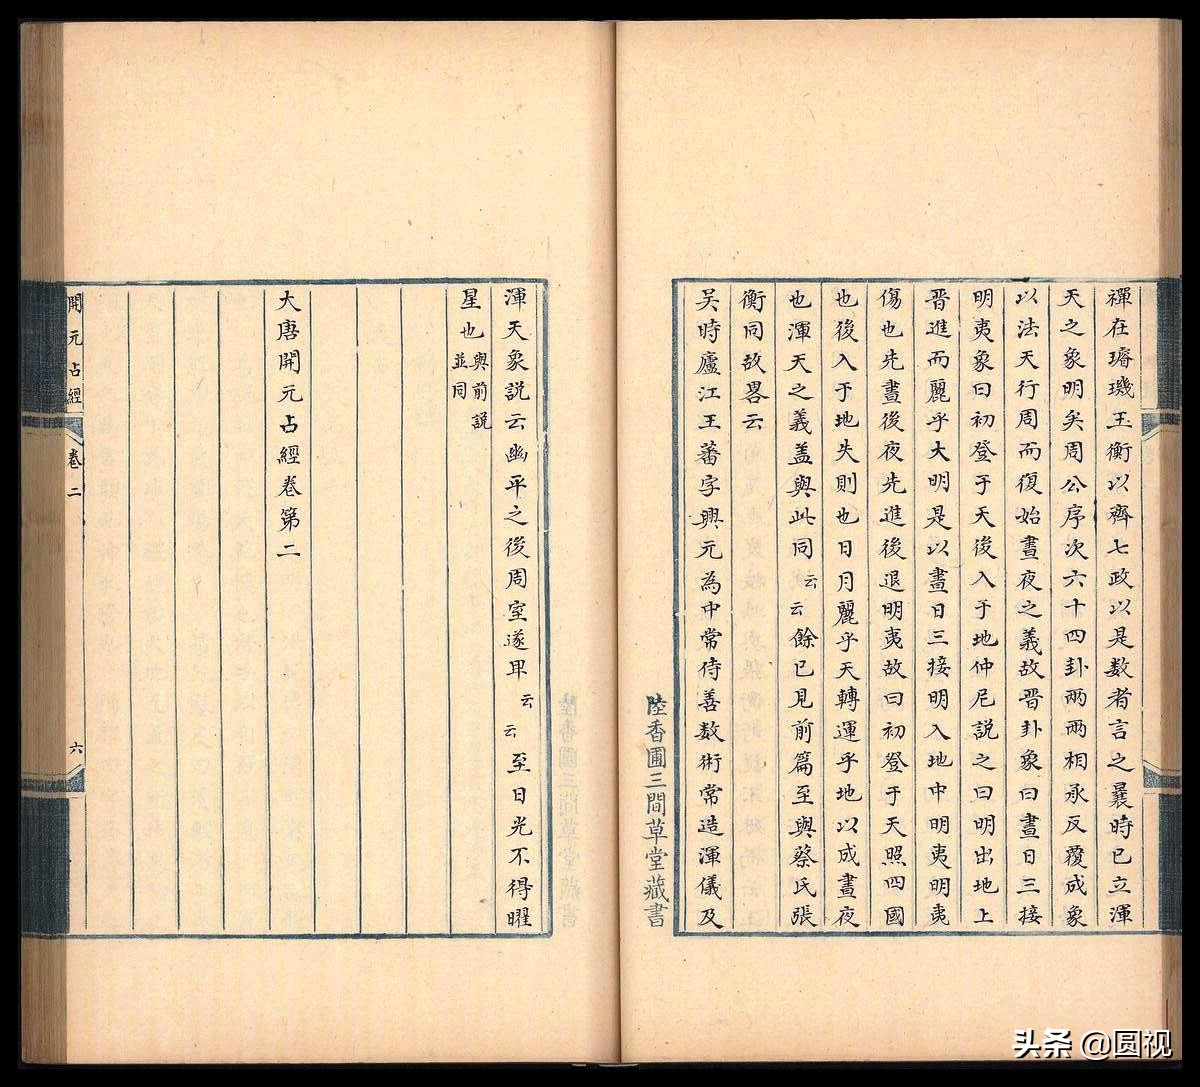 禪在璿璣玉衡以齊七政以是数者言之曩時已立渾
天之象明矣周公序次六十四卦两两相承反覆成象
以法天行周而復始晝夜之義故晋卦象曰晝日三接
明夷象曰初登于天後入于地仲尼說之曰明出地上
晋進而麗乎大明是以晝日三接明入地中明夷明夷
傷也先晝後夜先進後退明夷故曰初登于天照四國
也後入于地失則也日月麗乎天轉運乎地以成晝夜
也渾天之義盖與此同云云餘已見前篇至與蔡氏張
衡同故畧云
吴時廬江王蕃字興元為中常侍善数術常造渾儀及
陸香圃三間草堂藏書
渾天象說云幽平之後周室遂卑云云至日光不得曜
星也與前說並同
大唐開元占經卷第二
開元占經 卷二 六
头条 @圆视